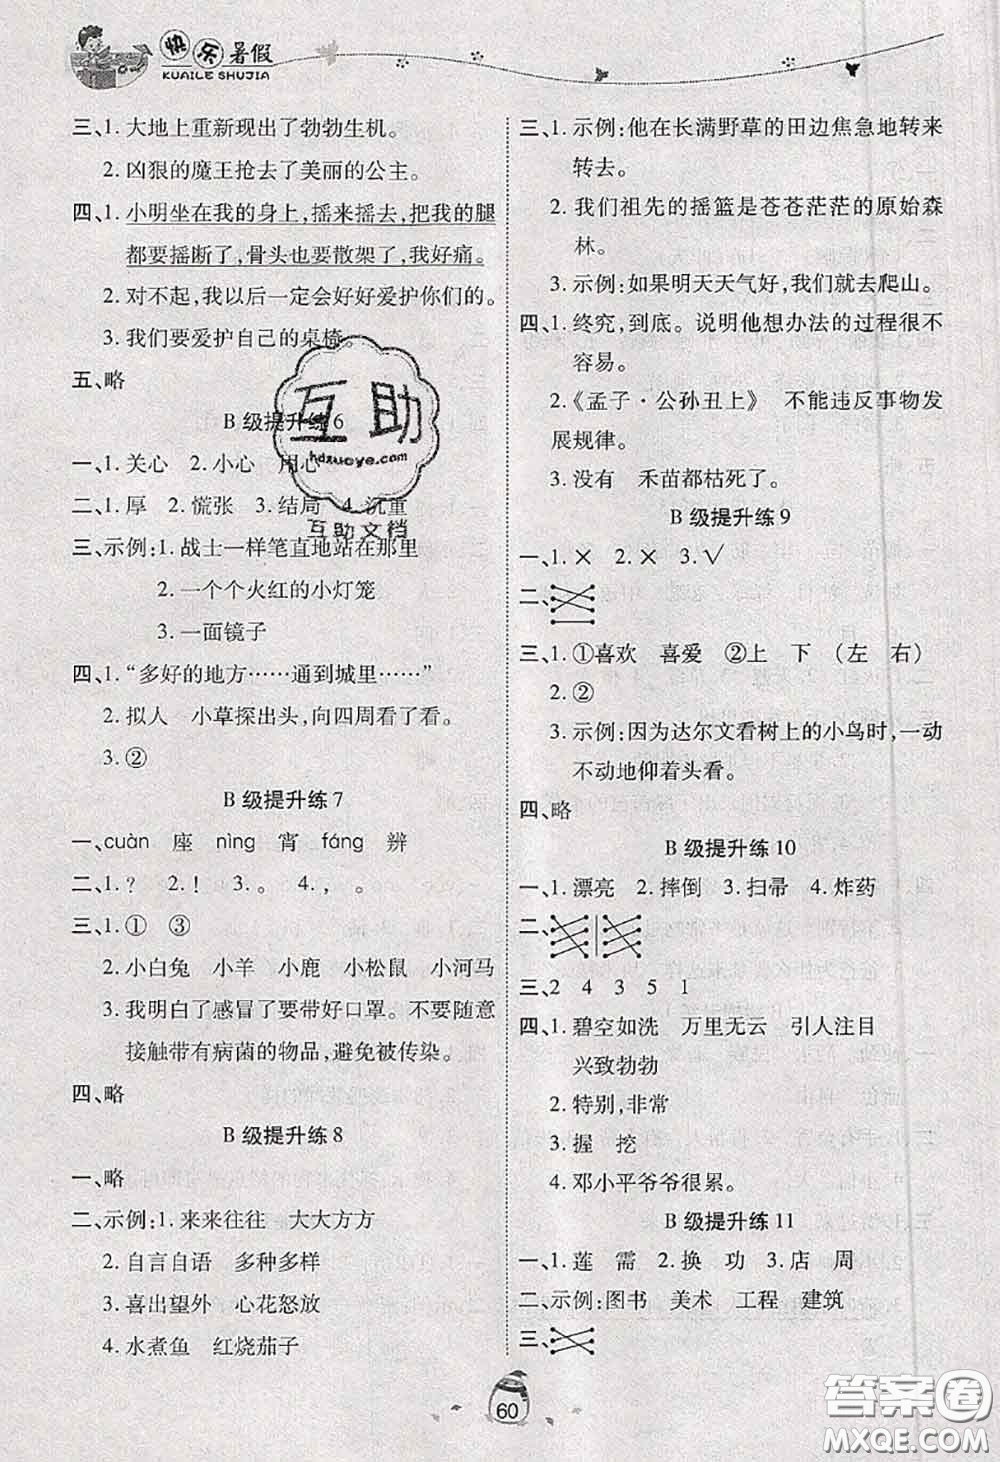 快乐暑假
KUAILE SHUJIA
三、1. 大地上重新现出了勃勃生机。
2. 凶狠的魔王抢去了美丽的公主。
四、1. 小明坐在我的身上,摇来摇去,把我的腿
都要摇断了,骨头也要散架了,我好痛。
2. 对不起,我以后一定会好好爱护你们的。
3. 我们要爱护自己的桌椅。
五、略
B 级提升练 6
一、1. 关心 2. 小心 用心
二、1. 厚 2. 慌张 3. 结局 4. 沉重
三、示例:1. 战士一样笔直地站在那里
2. 一个个火红的小灯笼
3. 一面镜子
四、1. “多好的地方……通到城里……”
2. 拟人 小草探出头,向四周看了看。
3. ②
B 级提升练 7
一、cuàn 座 nìng 宵 fáng 辨
二、1. ? 2. ! 3. 。 4. , 。
三、1. ① ③
2. 小白兔 小羊 小鹿 小松鼠 小河马
3. 我明白了感冒了要带好口罩。不要随意
接触带有病菌的物品,避免被传染。
四、略
B 级提升练 8
一、略
二、示例:1. 来来往往 大大方方
2. 自言自语 多种多样
3. 喜出望外 心花怒放
4. 水煮鱼 红烧茄子
三、1. 示例:他在长满野草的田边焦急地转来
转去。
2. 我们祖先的摇篮是苍苍茫茫的原始森
林。
3. 示例:如果明天天气好,我们就去爬山。
四、1. 终究,到底。说明他想办法的过程很不
容易。
2.《孟子·公孙丑上》 不能违反事物发
展规律。
3. 没有 禾苗都枯死了。
B 级提升练 9
一、1. × 2. × 3. √
二、
三、1. ①喜欢 喜爱 ②上 下 (左 右)
2. ②
3. 示例:因为达尔文看树上的小鸟时,一动
不动地仰着头看。
四、略
B 级提升练 10
一、1. 漂亮 2. 摔倒 3. 扫帚 4. 炸药
二、
三、2 4 3 5 1
四、1. 碧空如洗 万里无云 引人注目
兴致勃勃
2. 特别,非常
3. 握 挖
4. 邓小平爷爷很累。
B 级提升练 11
一、1. 莲 需 2. 换 功 3. 店 周
二、示例:图书 美术 工程 建筑
三、
60
互助
hdzuoye.com
互助文档
答案圈
MXQE.COM